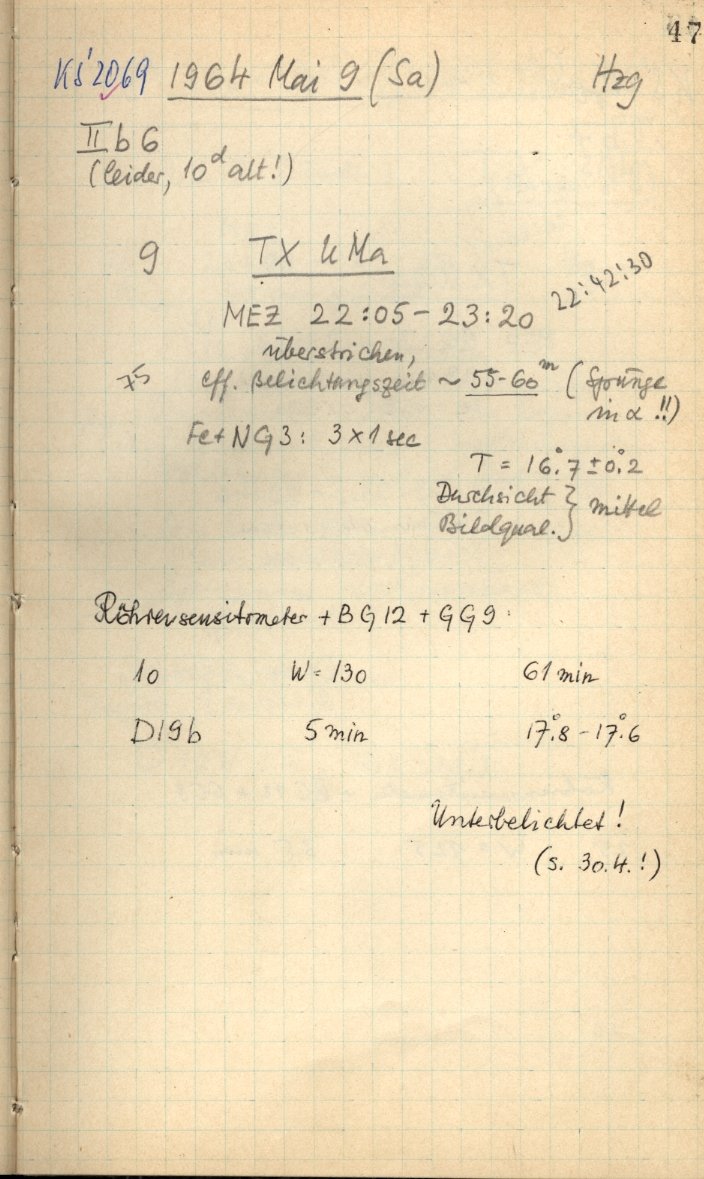 47
KS 2069 1964 Mai 9 (Sa) Hzg
II b 6
(leider, 10d alt!)
9 TX UMa
MEZ 22:05 - 23:20 22:42:30
überstrichen,
75 eff. Belichtungszeit ~ 55-60m (Sprünge
in α!!)
Fe + NG3: 3 x 1 sec
T = 16°.7 ± 0°.2
Durchsicht } mittel
Bildqual.
Röhrensensitometer + BG12 + GG9
10 W = 130 61 min
D19b 5 min 17°.8 - 17°.6
Unterbelichtet!
(s. 30.4.!)